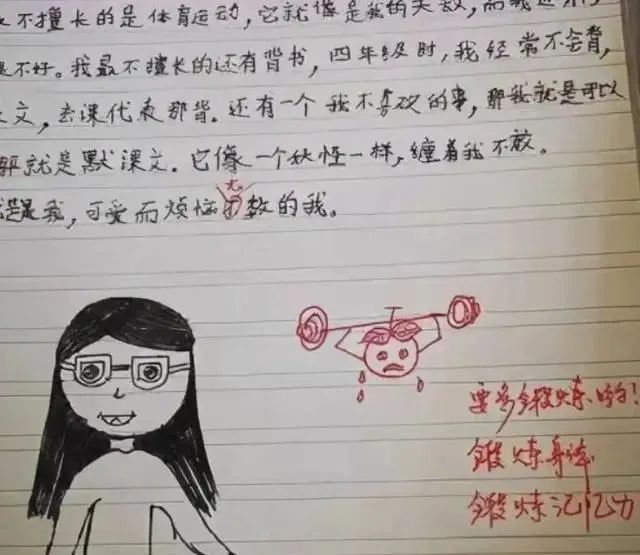 不擅长的是体育运动，它就像是我的天敌，而我
是不好。我最不擅长的还有背书，四年级时，我经常不会背，
文，去课代表那背。还有一个我不喜欢的事，那我就是可以
就是默课文。它像一个妖怪一样，缠着我不放。
无
是我，可爱而烦恼数的我。
要多锻炼哟！
锻炼身体
锻炼记忆力